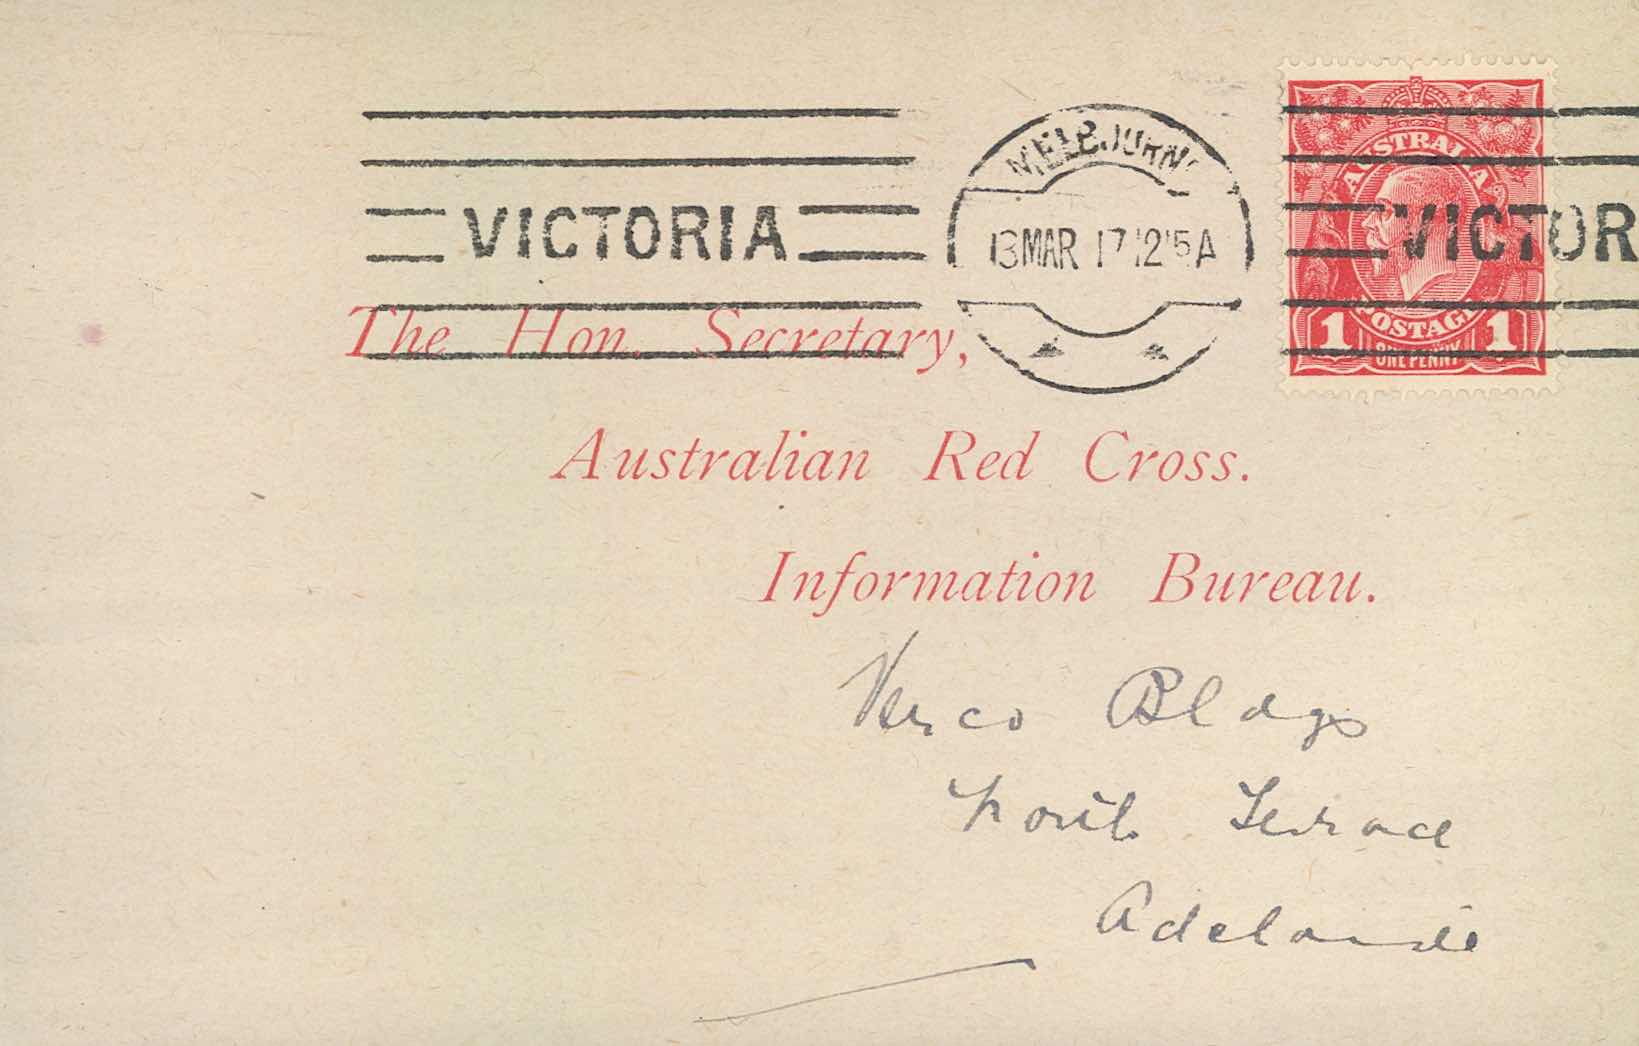 VICTORIA
MELBOURNE
13 MAR 17 12 15 A
VICTOR
AUSTRALIA
POSTAGE
1 ONE PENNY 1
The Hon. Secretary,
Australian Red Cross.
Information Bureau.
Verco Bldgs
North Terrace
Adelaide